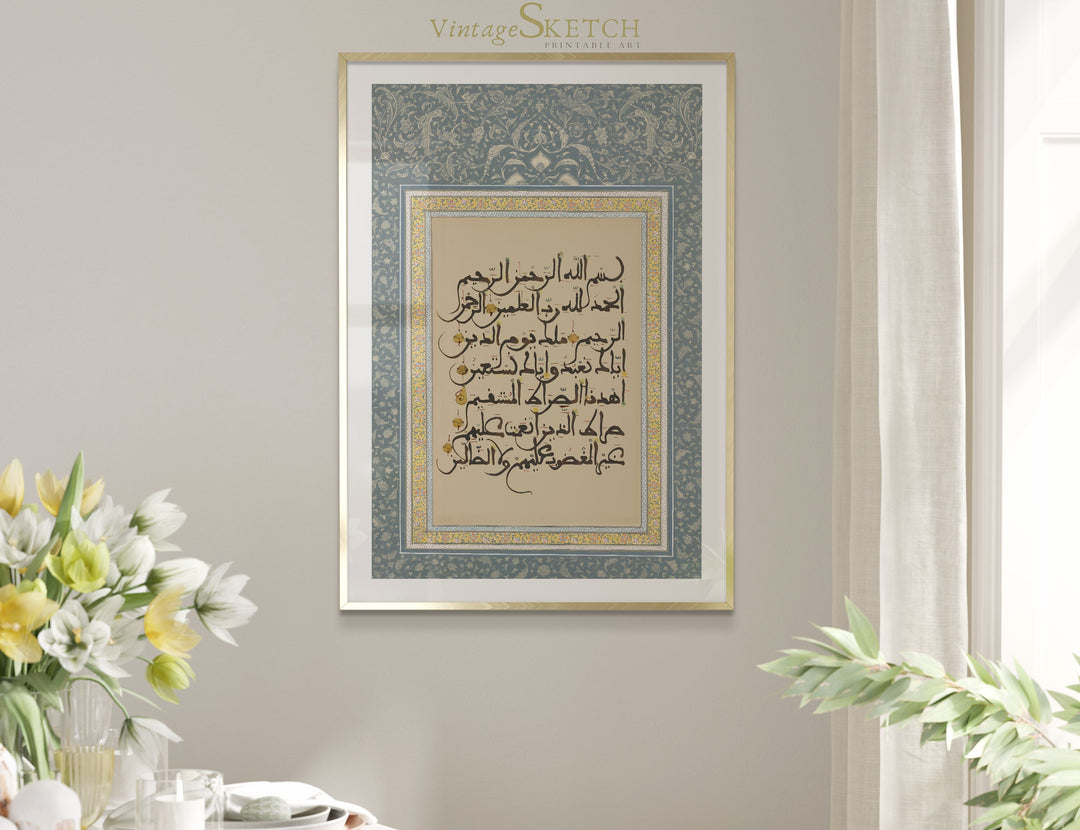 VintageSKETCH
PRINTABLE ART
بسم الله الرحمن الرحيم
الحمد لله رب العلمين الرحمن
الرحيم ملك يوم الدين
إياك نعبد وإياك نستعين
اهدنا الصراط المستقيم
صراط الذين أنعمت عليهم
غير المغضوب عليهم ولا الضالين